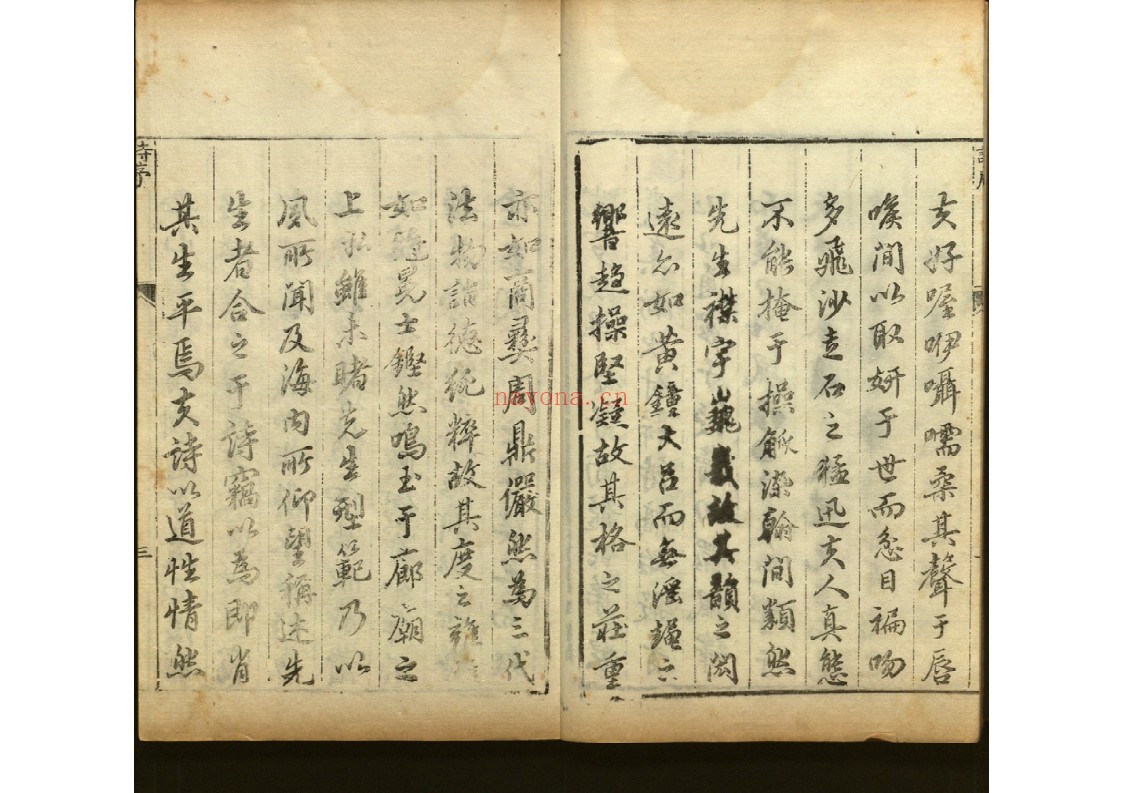 夫好喔咿囁嚅柔其聲于唇
喉間以取妍于世而忿目褊吻
多飛沙走石之猛迅夫人真態
不能掩于操觚染翰間類然
先生襟宇巍峩故其韻之閎
遠亦如黃鐘大呂而無淫
響趨操堅凝故其格之莊重
亦如商彝周鼎儼然為三代
法物詣德純粹故其度之雍
如冠冕士鏗然鳴玉于廊廟之
上雖未睹先生型範乃以
風所聞及海內所仰望稱述先
生者合之于詩竊以為即肖
其生平焉夫詩以道性情然
詩序
三
nayona.cn